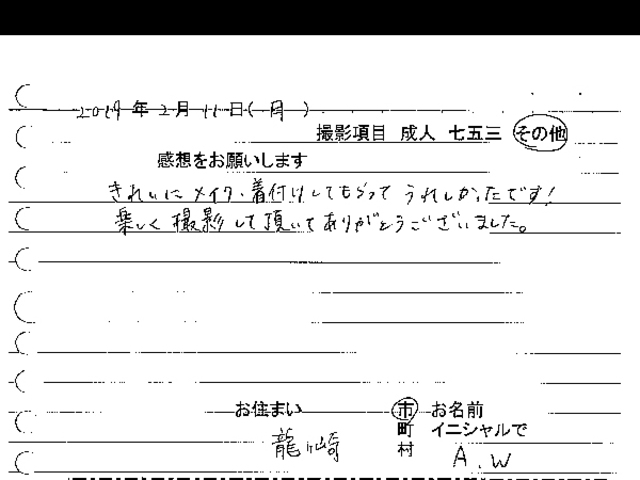 2019年2月11日(月)
撮影項目 成人 七五三 その他
感想をお願いします
きれいにメイク・着付けしてもらって うれしかったです!
楽しく撮影して頂いてありがとうございました。
お住まい 市 お名前
町 イニシャルで
龍ヶ崎 村 A.W